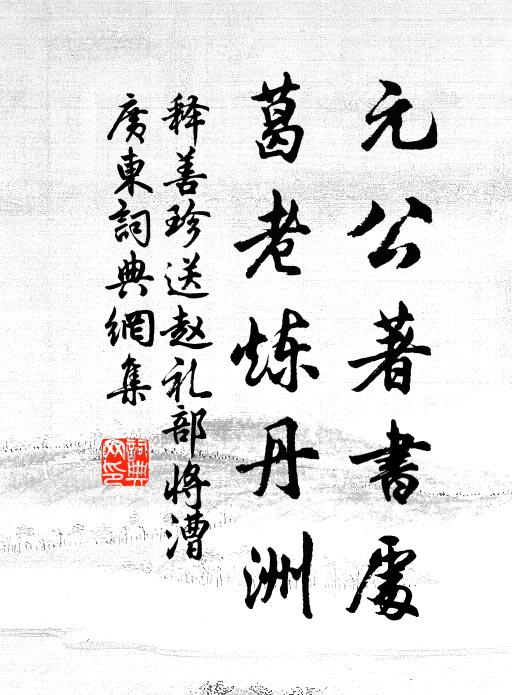 元公著書處
葛老炼丹洲
释善珍送赵礼部将漕
廣東詞典網集